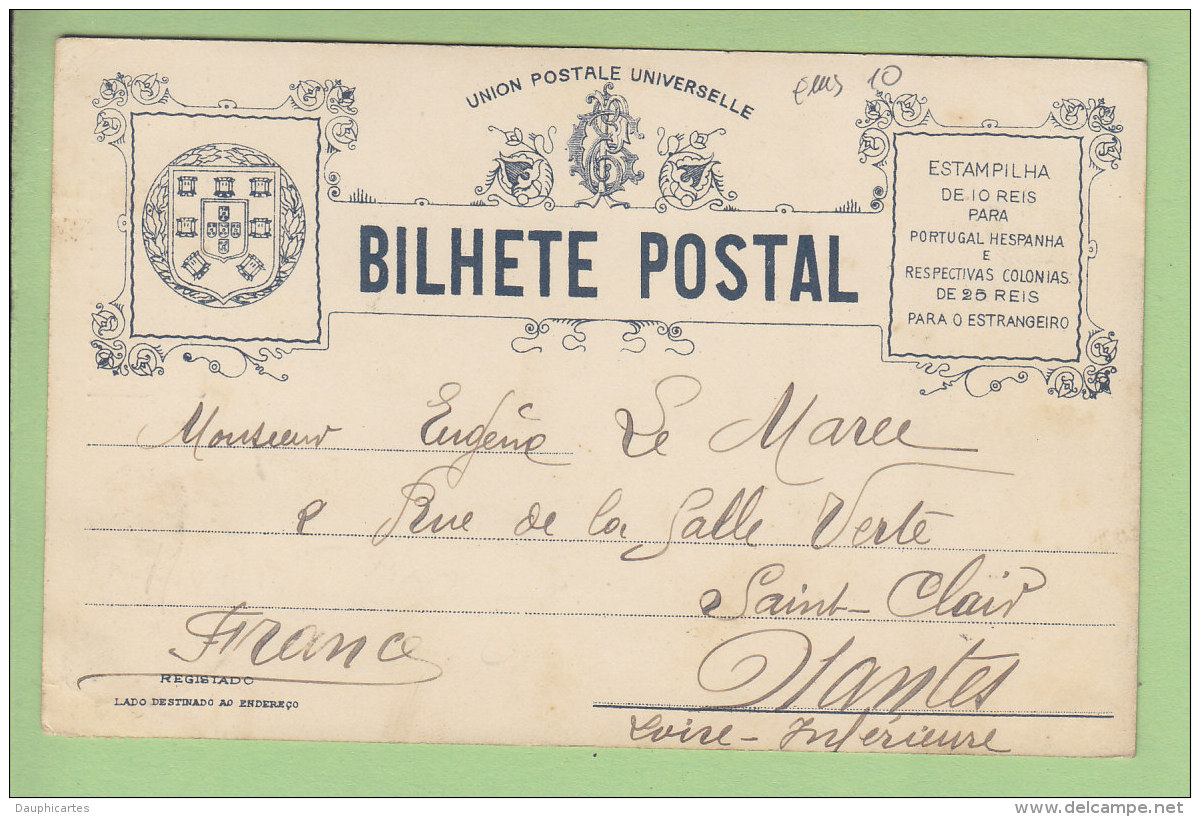 UNION POSTALE UNIVERSELLE
10
BILHETE POSTAL
ESTAMPILHA
DE 10 REIS
PARA
PORTUGAL HESPANHA
E
RESPECTIVAS COLONIAS
DE 25 REIS
PARA O ESTRANGEIRO
Monsieur Eugène Le Maree
2 Rue de la Salle Verte
Saint-Clair
France
Nantes
REGISTADO
LADO DESTINADO AO ENDEREÇO
Loire-Inférieure
Dauphicartes
delcampe.net